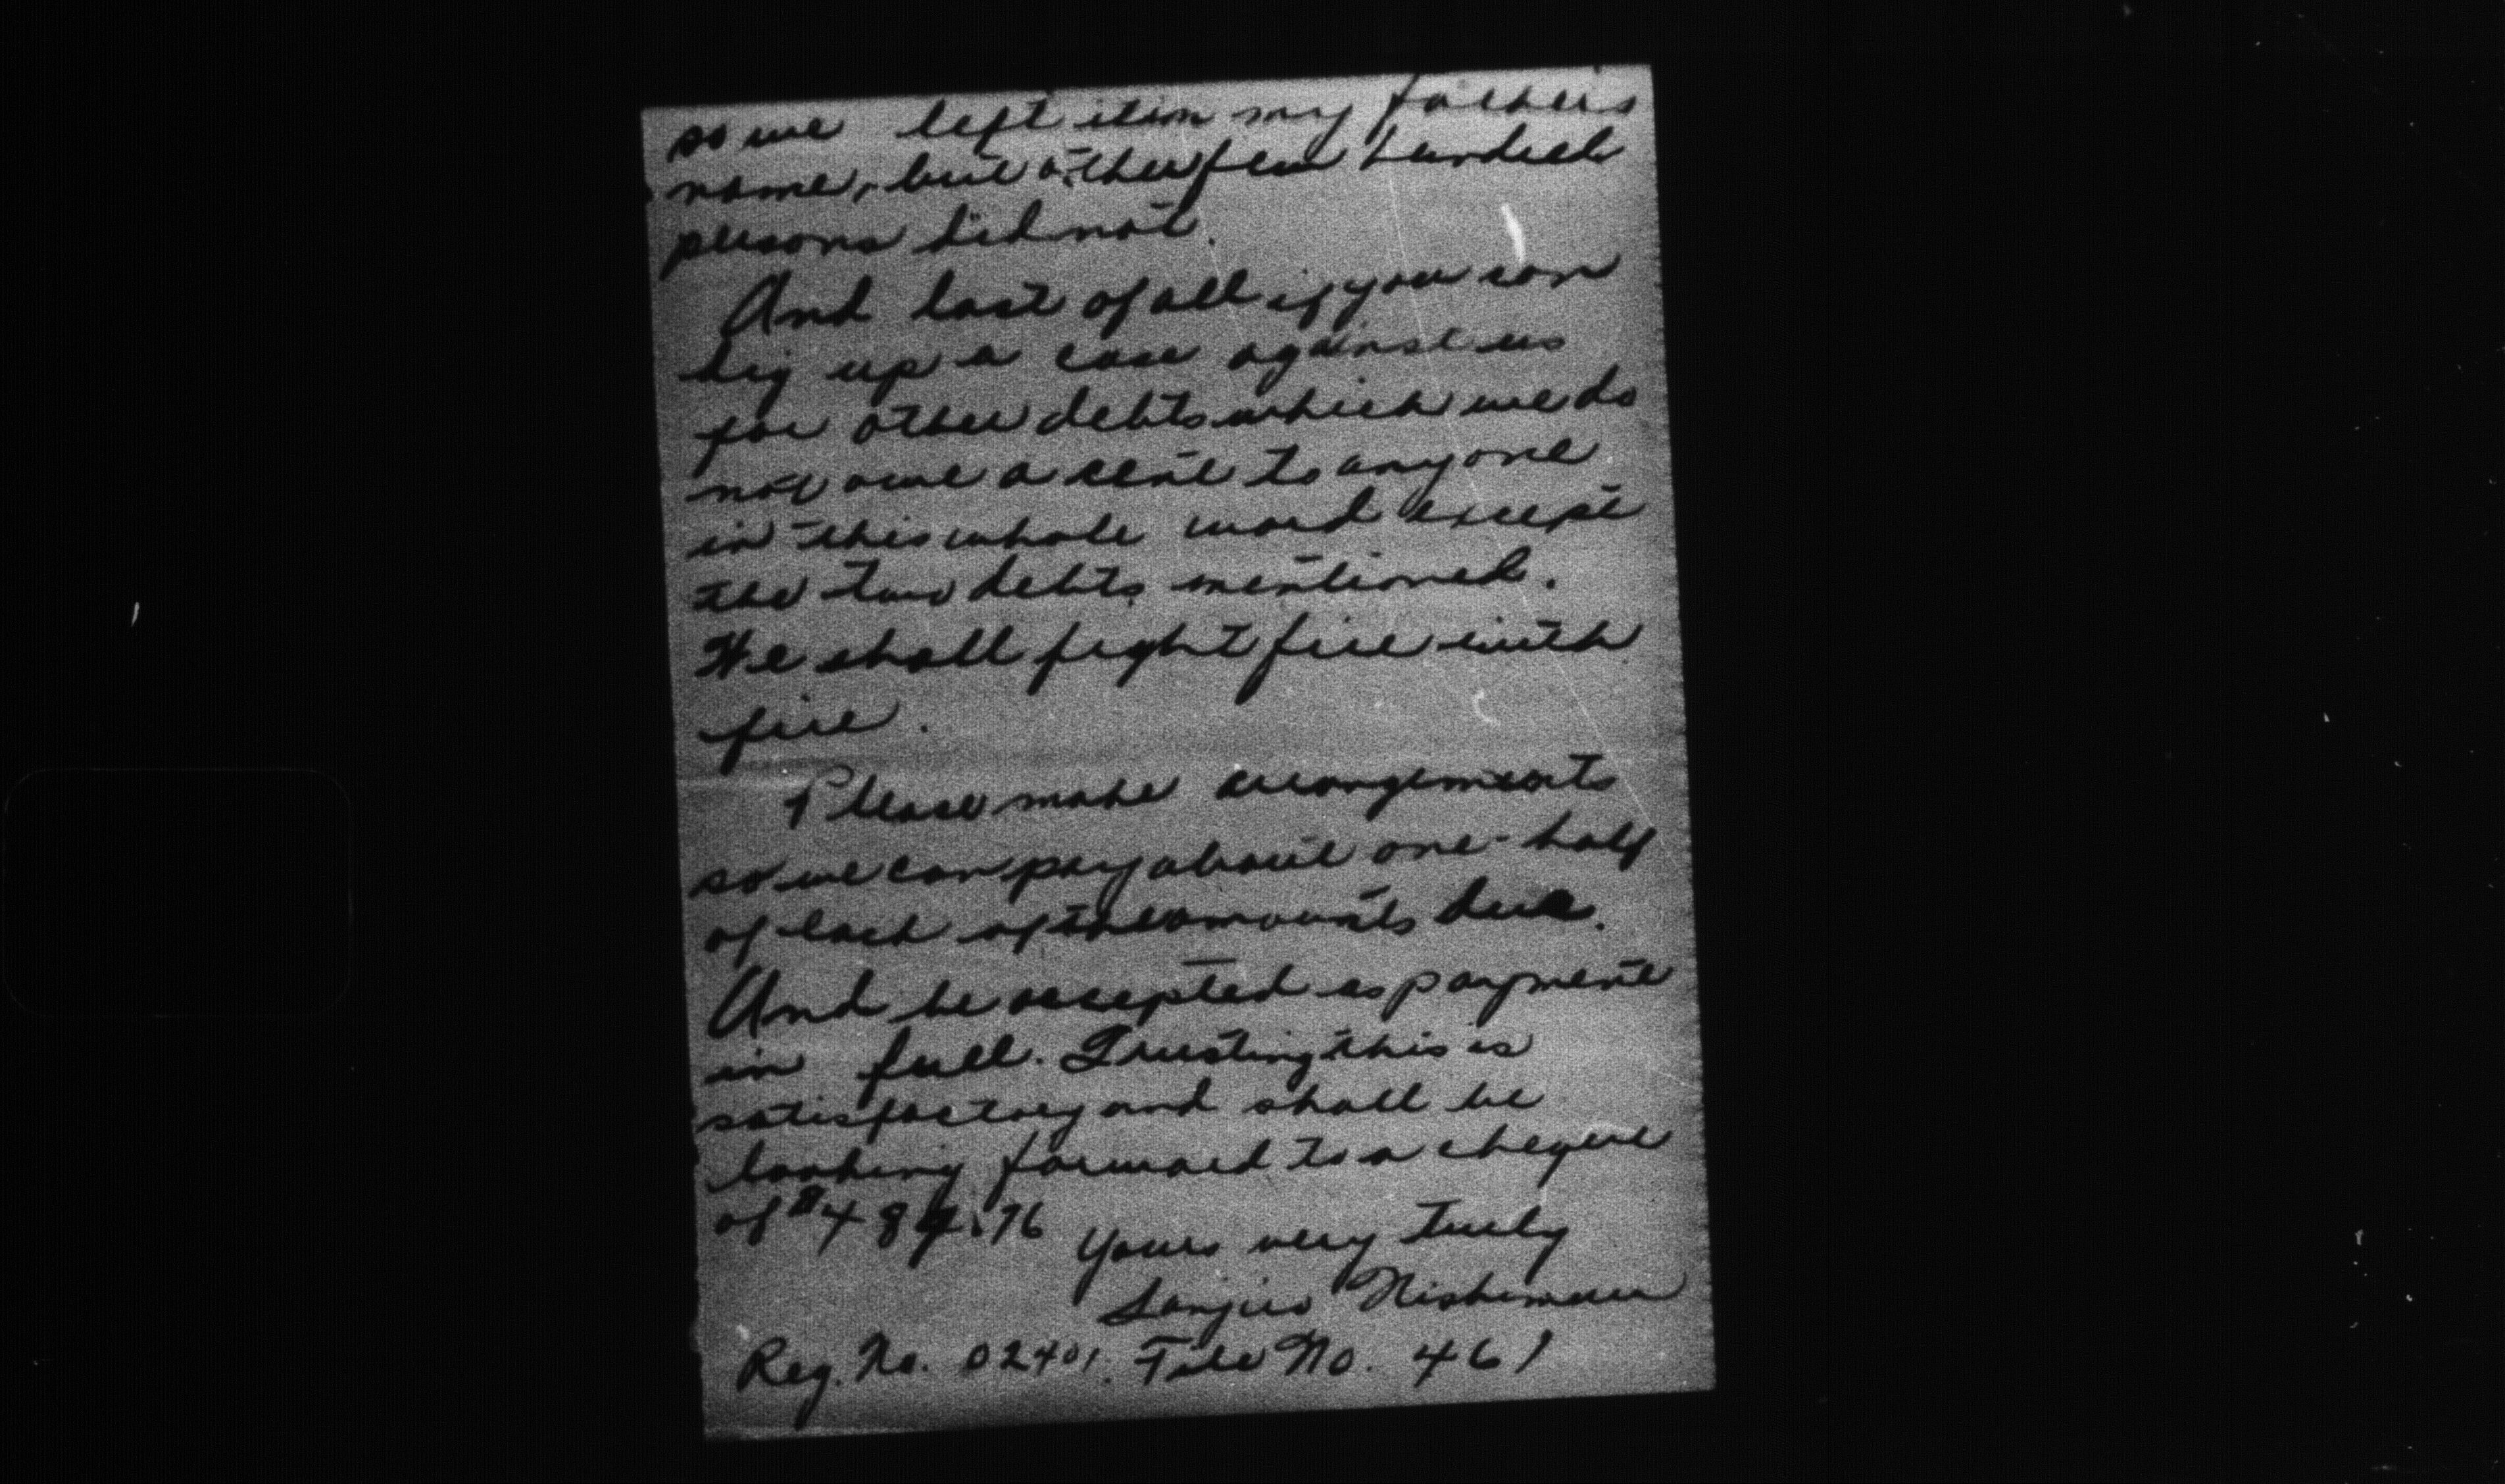 so we left it in my fathers
name, but other few hundred
persons did not.
And last of all if you can
dig up a case against us
for other debts which we do
not owe a cent to anyone
in this whole word except
the two debts mentioned.
We shall fight fire with
fire.
Please make arrangements
so we can pay about one-half
of each of the amounts due.
And be accepted as payment
in full. Trusting this is
satisfactory and shall be
looking forward to a cheque
of $484.76
Yours very truly
Sanjiro Nishimura
Reg. No. 02401. File No. 461